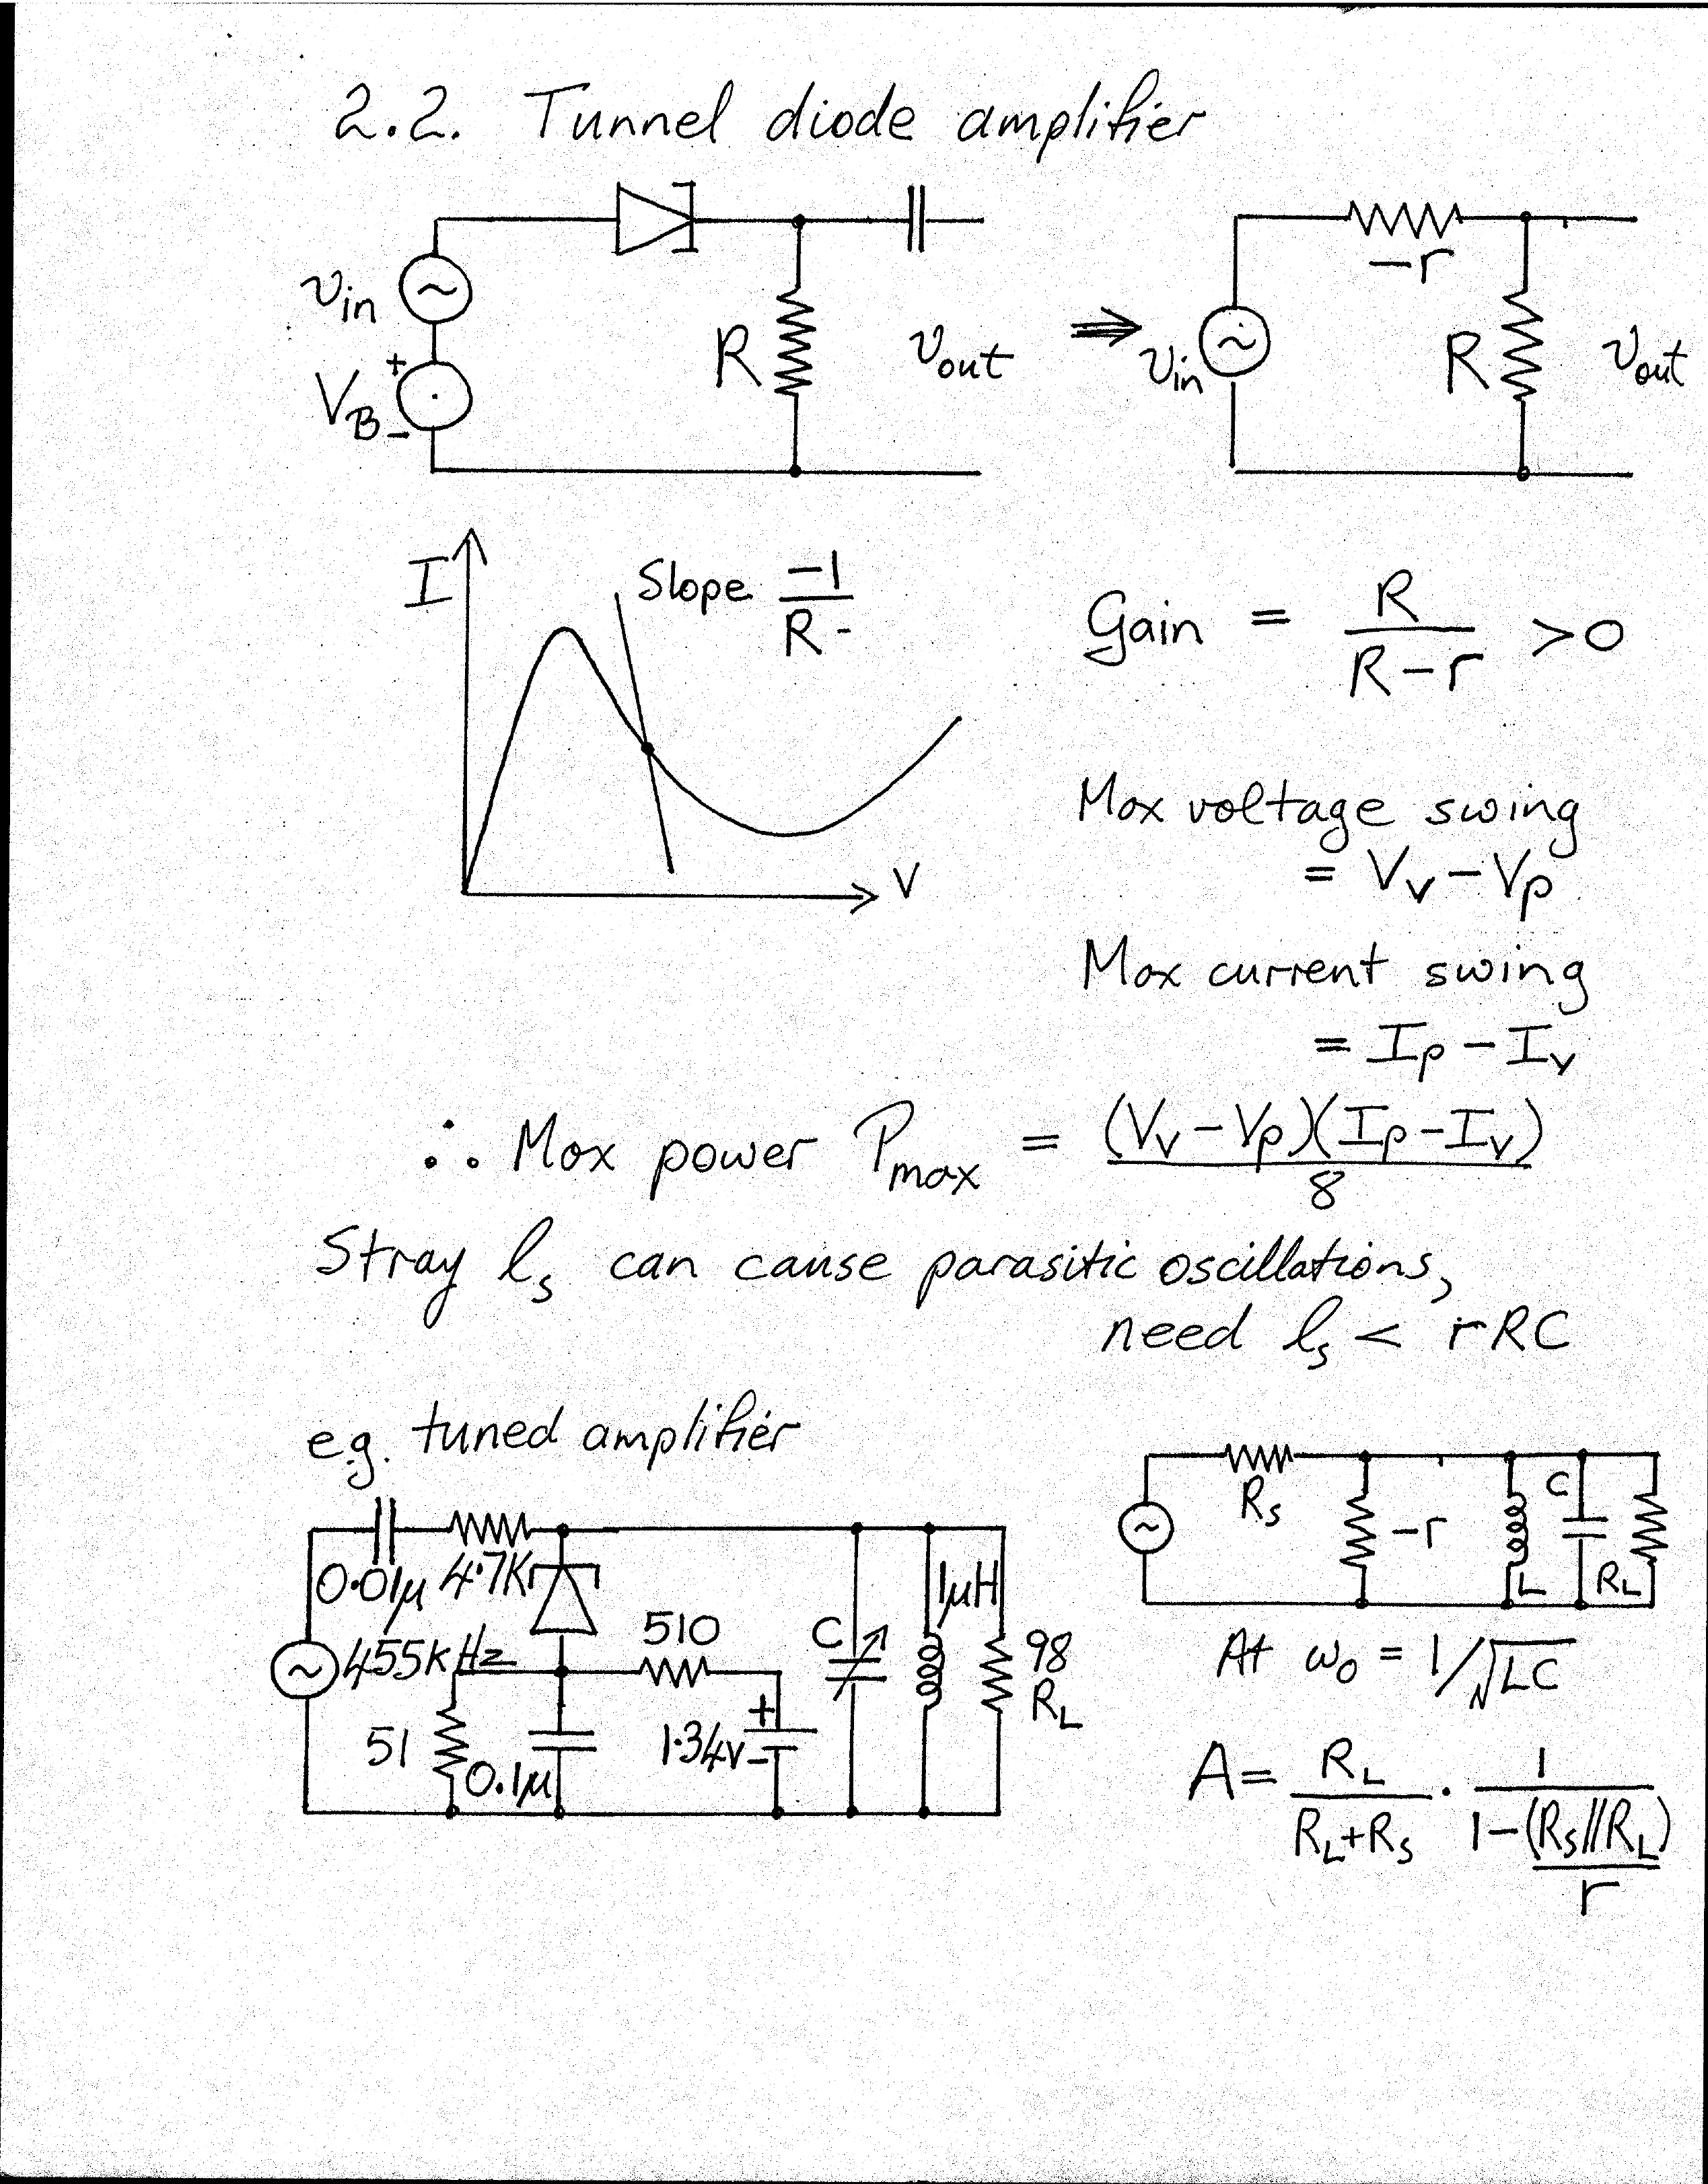 2.2. Tunnel diode amplifier
v_in
V_B
+
-
R
v_out
⇒
v_in
-r
R
v_out
I
Slope -1/R
V
Gain = R/(R-r) >0
Max voltage swing
= V_v - V_p
Max current swing
= I_p - I_v
∴ Max power P_max = (V_v - V_p)(I_p - I_v)/8
Stray l_s can cause parasitic oscillations,
need l_s < rRC
e.g. tuned amplifier
0.01μ
4.7K
455kHz
510
51
0.1μ
1.34v
+
-
C
1μH
98
R_L
R_s
-r
L
C
R_L
At ω_0 = 1/√LC
A = R_L/(R_L+R_s) · 1/(1-(R_s//R_L)/r)